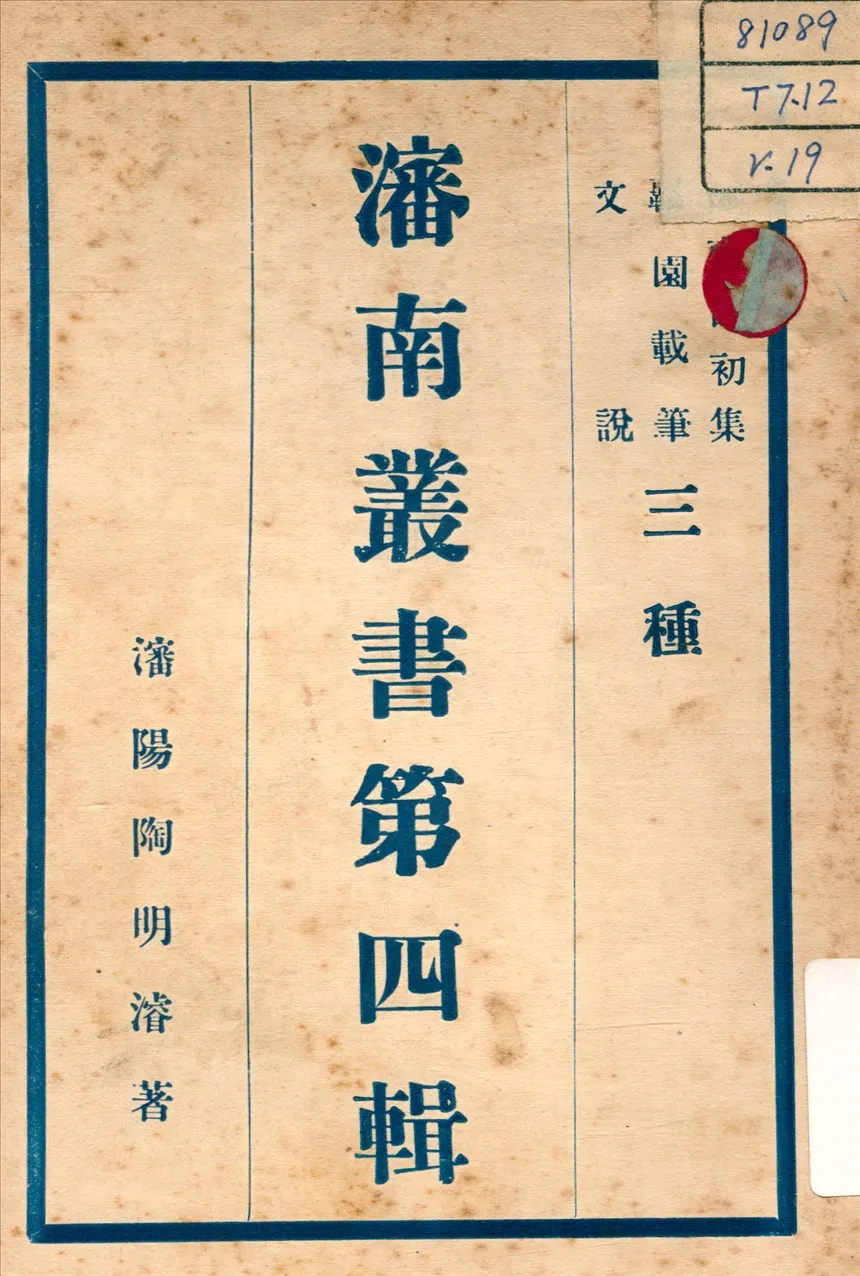 81089
T7.12
V.19
初集
園載筆
文說
三種
瀋南叢書第四輯
瀋陽陶明濬著